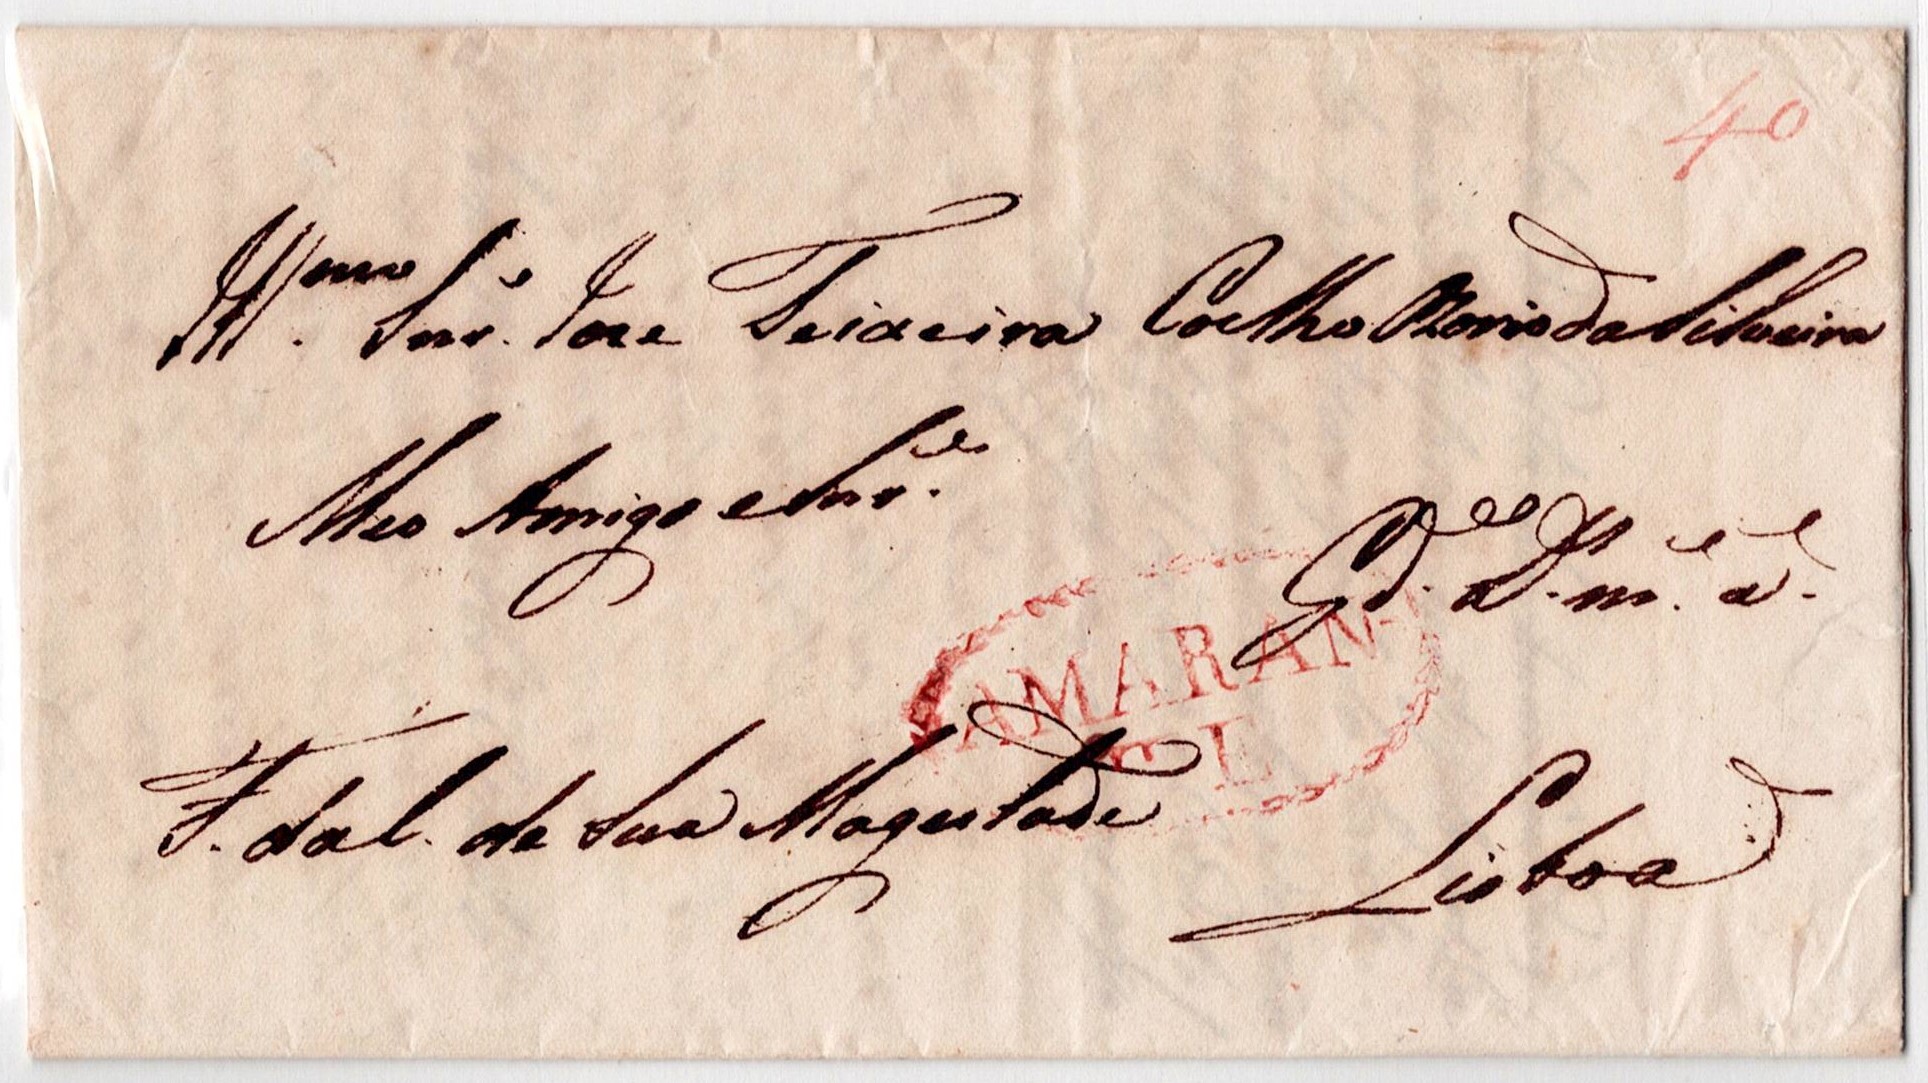 40
Illmo Snr. Joze Teixeira Coelho Ozorio da Silveira
Meo Amigo e Snr.e
Gd.e D.s m.s a.s
AMARAN-
TE
F. dal. de Sua Magestade
Lisboa